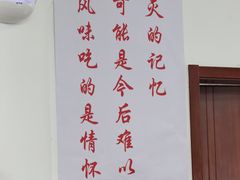 风味吃的是情怀
可能是今后难以
灭的记忆